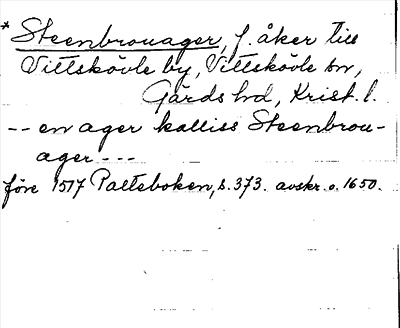 * Steenbrouager, f. åker till
Vittskövle by, Vittskövle sn,
Gärds hd, Krist. l.
-- en ager kalliss Steenbrou-
ager ---
före 1517 Palteboken, s. 373. avskr. o. 1650.